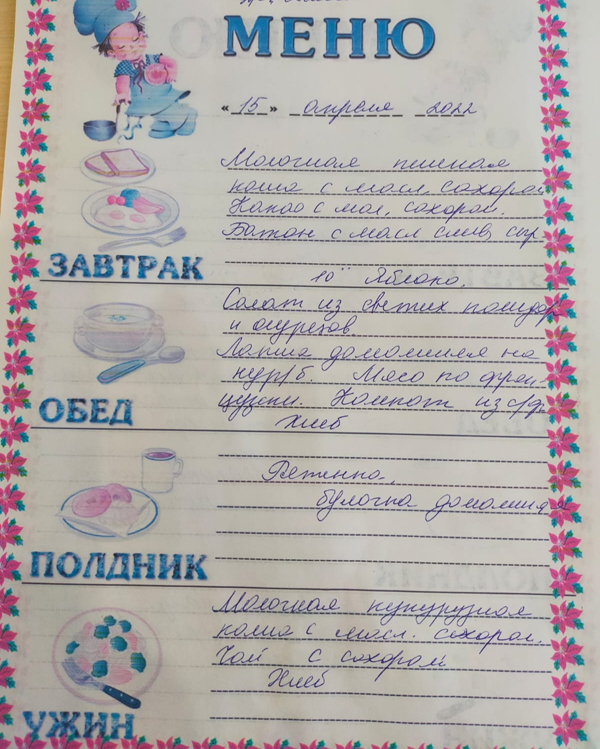 МЕНЮ
« 15 » апреля 2022
Молочная пшеная
каша с масл, сахаром
Какао с мол, сахаром.
Батон с масл слив, сыр
ЗАВТРАК
10⁰⁰ Яблоко.
Салат из свежих помидор
и огурцов.
Лапша домашняя на
кур/б. Мясо по фран-
цузски. Компот из с/ф
Хлеб
ОБЕД
Ряженка,
булочка домашняя
ПОЛДНИК
Молочная кукурузная
каша с масл. сахаром.
Чай с сахаром
Хлеб
УЖИН